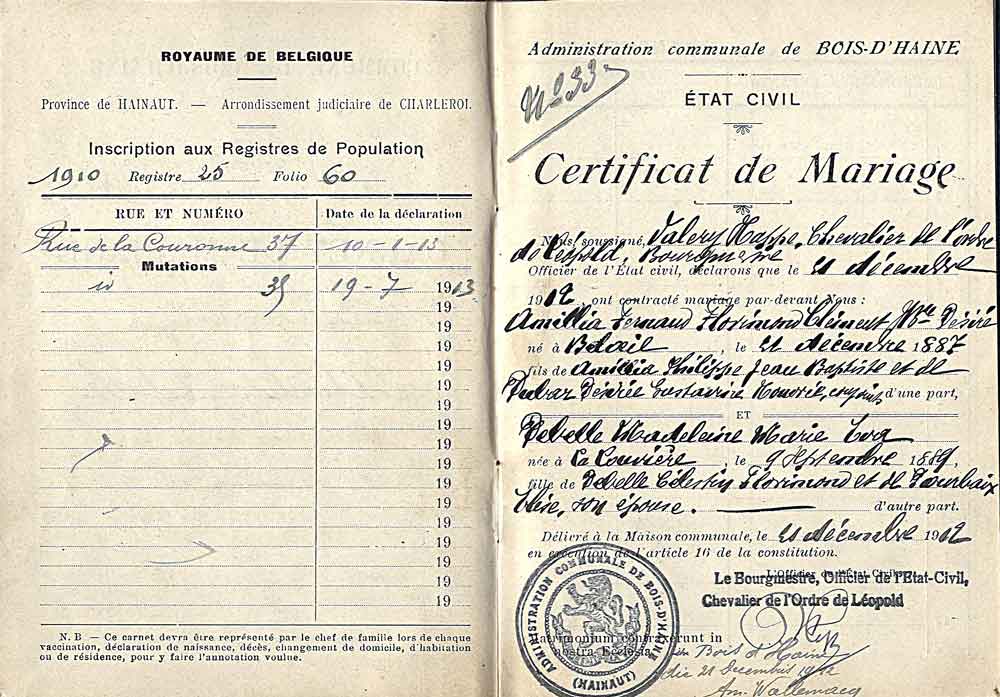 ROYAUME DE BELGIQUE
Province de HAINAUT. — Arrondissement judiciaire de CHARLEROI.
Inscription aux Registres de Population
1910 Registre 25 Folio 60
RUE ET NUMÉRO Date de la déclaration
Rue de la Couronne 37 10-1-13
Mutations
id 35 19-7 1913
19
19
19
19
19
19
19
19
19
19
19
19
19
19
19
19
N. B — Ce carnet devra être représenté par le chef de famille lors de chaque
vaccination, déclaration de naissance, décès, changement de domicile, d'habitation
ou de résidence, pour y faire l'annotation voulue.
Administration communale de BOIS-D'HAINE
No 33
ÉTAT CIVIL
Certificat de Mariage
Nous soussigné, Valery Happe, Chevalier de l'ordre
de Léopold, Bourgmestre
Officier de l'État civil, déclarons que le 21 décembre
1912, ont contracté mariage par-devant Nous :
Amillia Fernand Florimond Clément Désiré
né à Belœil, le 21 décembre 1887
fils de Amillia Philippe Jean Baptiste et de
Dubar Désirée Honorée, conjoints d'une part,
ET
Debelle Madeleine Marie
née à La Louvière, le 9 Septembre 1889,
fille de Debelle Célestin Florimond et de Fourbaix
Elise, son épouse. d'autre part.
Délivré à la Maison communale, le 21 décembre 1912
en exécution de l'article 16 de la constitution.
L'Officier de l'État Civil,
Le Bourgmestre, Officier de l'Etat-Civil,
Chevalier de l'Ordre de Léopold
ADMINISTRATION COMMUNALE DE BOIS-D'HAINE
(HAINAUT)
Matrimonium contraxerunt in
nostra Ecclesia
in Bois d'Haine
die 21 Decembris 1912
Am. Wallemacq